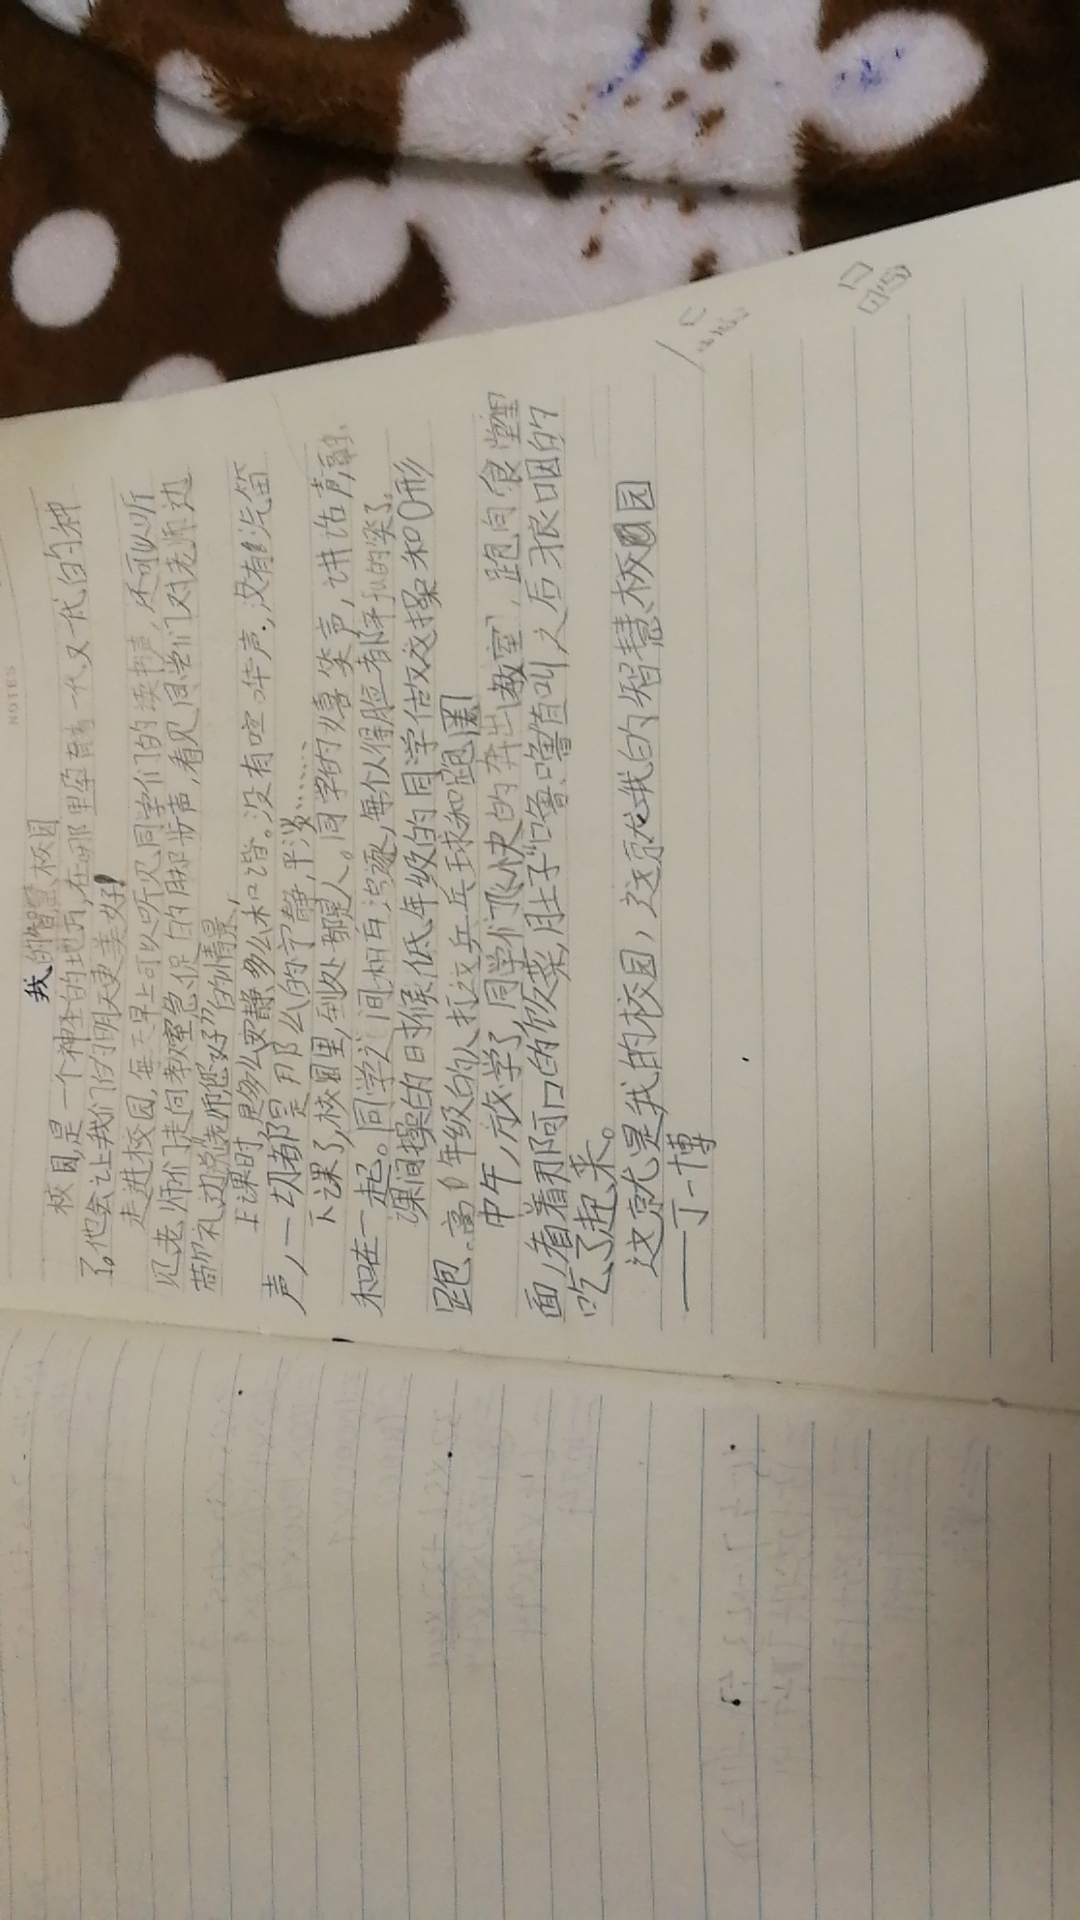 NOTES
我的智慧校园
校园,是一个神圣的地方,在那里孕育着一代又一代的种
了。他会让我们的明天更美好!
走进校园,每天早上可以听见同学们的读书声,还可以听
见老师们走向教室急促的脚步声,看见同学们对老师边
敬礼边说“老师您好”的情景,
上课时,是多么安静、多么和谐。没有喧哗声,没有汽笛
声,一切都是那么的宁静,平淡……
下课了,校园里,到处都是人。同学的嘻笑声,讲话声,融
和在一起。同学之间相互追逐,每个人得脸都
课间操的时候,低年级的同学做校操和O形
跑。高年级的人打这乒乓球和跑圈
中午,放学了,同学们飞快的奔出教室,跑向食堂里
面,看着那可口的饭菜,肚子“噜噜”直叫之后狼咽的
吃了起来。
这就是我的校园,这就是我的智慧校园
——丁一博